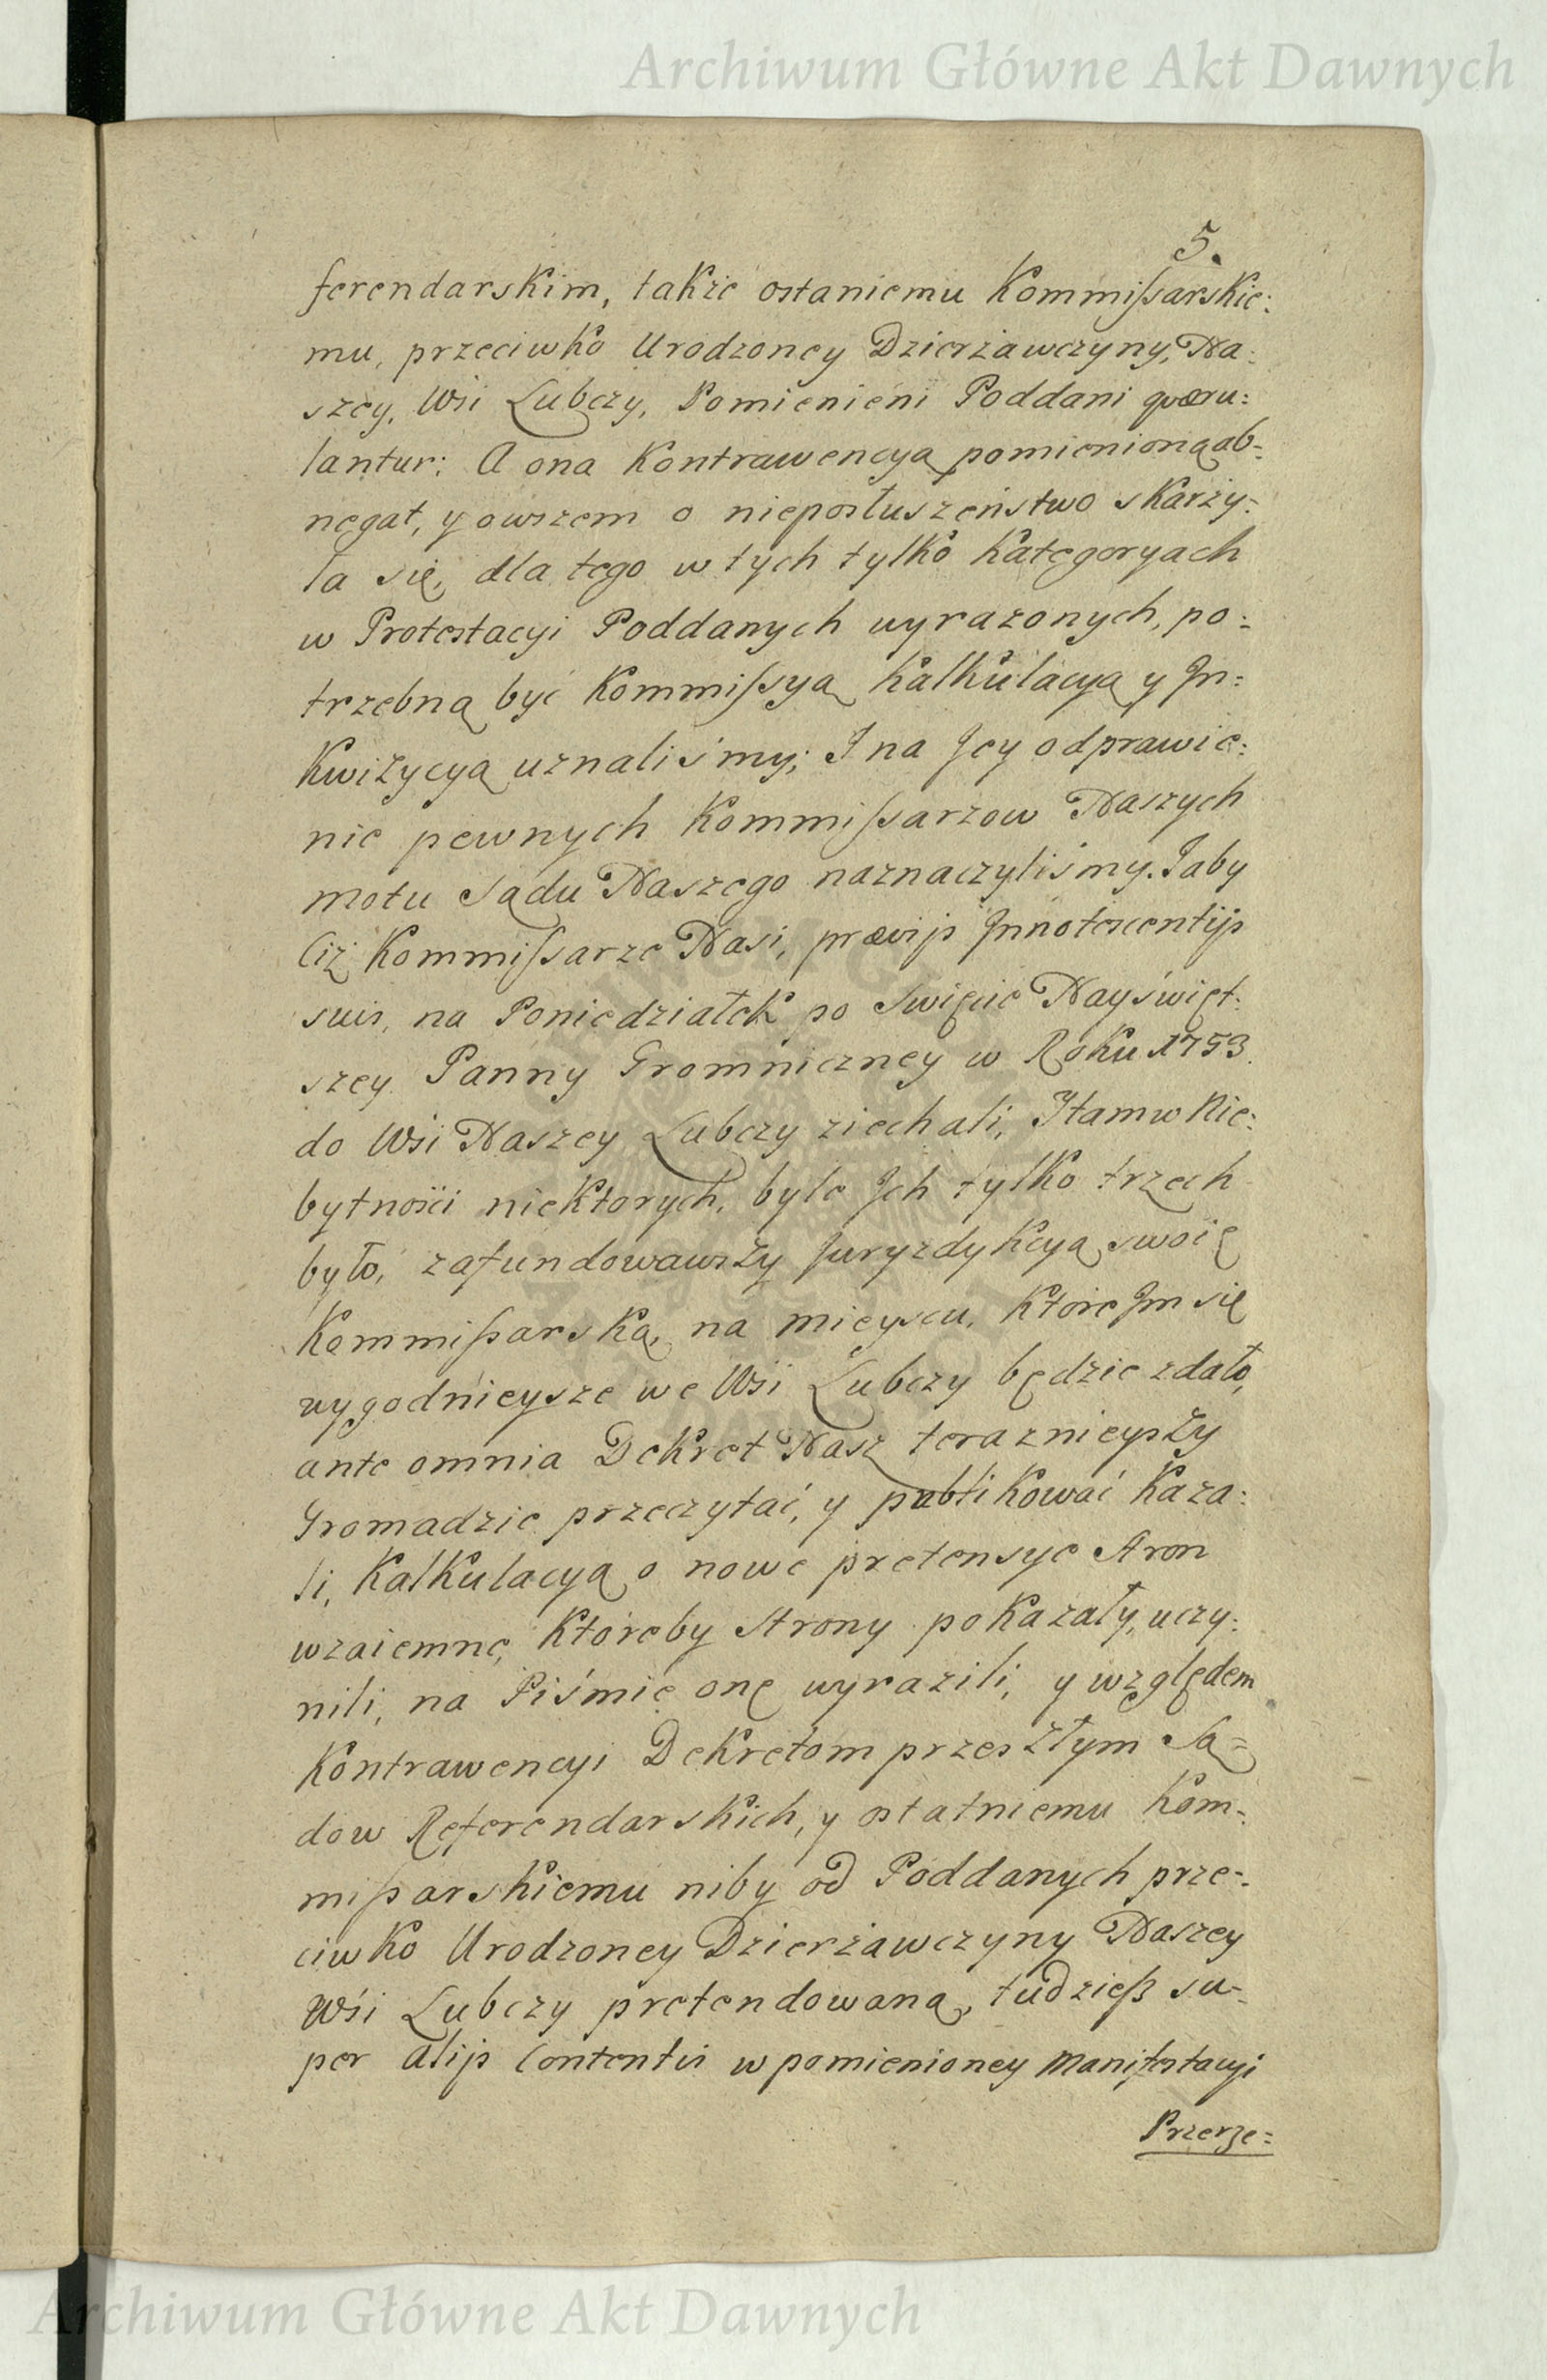 Archiwum Główne Akt Dawnych
5.
ferendarskim, także ostaniemu Kommiſsarskie:
mu, przeciwko Urodzoney Dzierżawczyny, Na:
szey, Wsi Lubczy, Pomienieni Poddani quæru:
lantur: A ona Kontrawencyą pomienioną ab:
negat, y owszem o nieposłuszeństwo skarży:
ła się, dla tego w tych tylko Kategoryach
w Protestacyi Poddanych wyrazonych, po:
trzebną być Kommiſsyą Kalkulacyą y In:
kwizycyą uznaliśmy; I na Jey odprawie:
nie pewnych Kommiſsarzow Naszych
motu Sądu Naszego naznaczyliśmy. Iaby
Ciż Kommiſsarze Nasi, prævijs Innotescentijs
suis, na Poniedziałek po Swięcie Nayświęt:
szey Panny Gromniczney w Roku 1753.
do Wsi Naszey Lubczy ziechali, I tam w Nie:
bytności niektorych, byle Ich tylko trzech
było, zafundowawszy Juryzdykcyą swoię
Kommißarską, na mieyscu, Ktore Im się
wygodnieysze we Wsi Lubczy będzie zdało,
ante omnia Dekret Nasz teraznieyszy
Gromadzie przeczytać, y publikować Kaza:
li, Kalkulacyą o nowe pretensye Stron
wzaiemne, Ktoreby Strony pokazały, uczy:
nili, na Piśmie onę wyrazili, y względem
Kontrawencyi Dekretom przeszłym Są=
dow Referendarskich, y ostatniemu Kom:
mißarskiemu niby od Poddanych prze:
ciwko Urodzoney Dzierżawczyny Naszey
Wśi Lubczy pretendowaną, tudzieß su:
per alijs Contentis w pomienioney Manifestacyi
Przerze=
Archiwum Główne Akt Dawnych